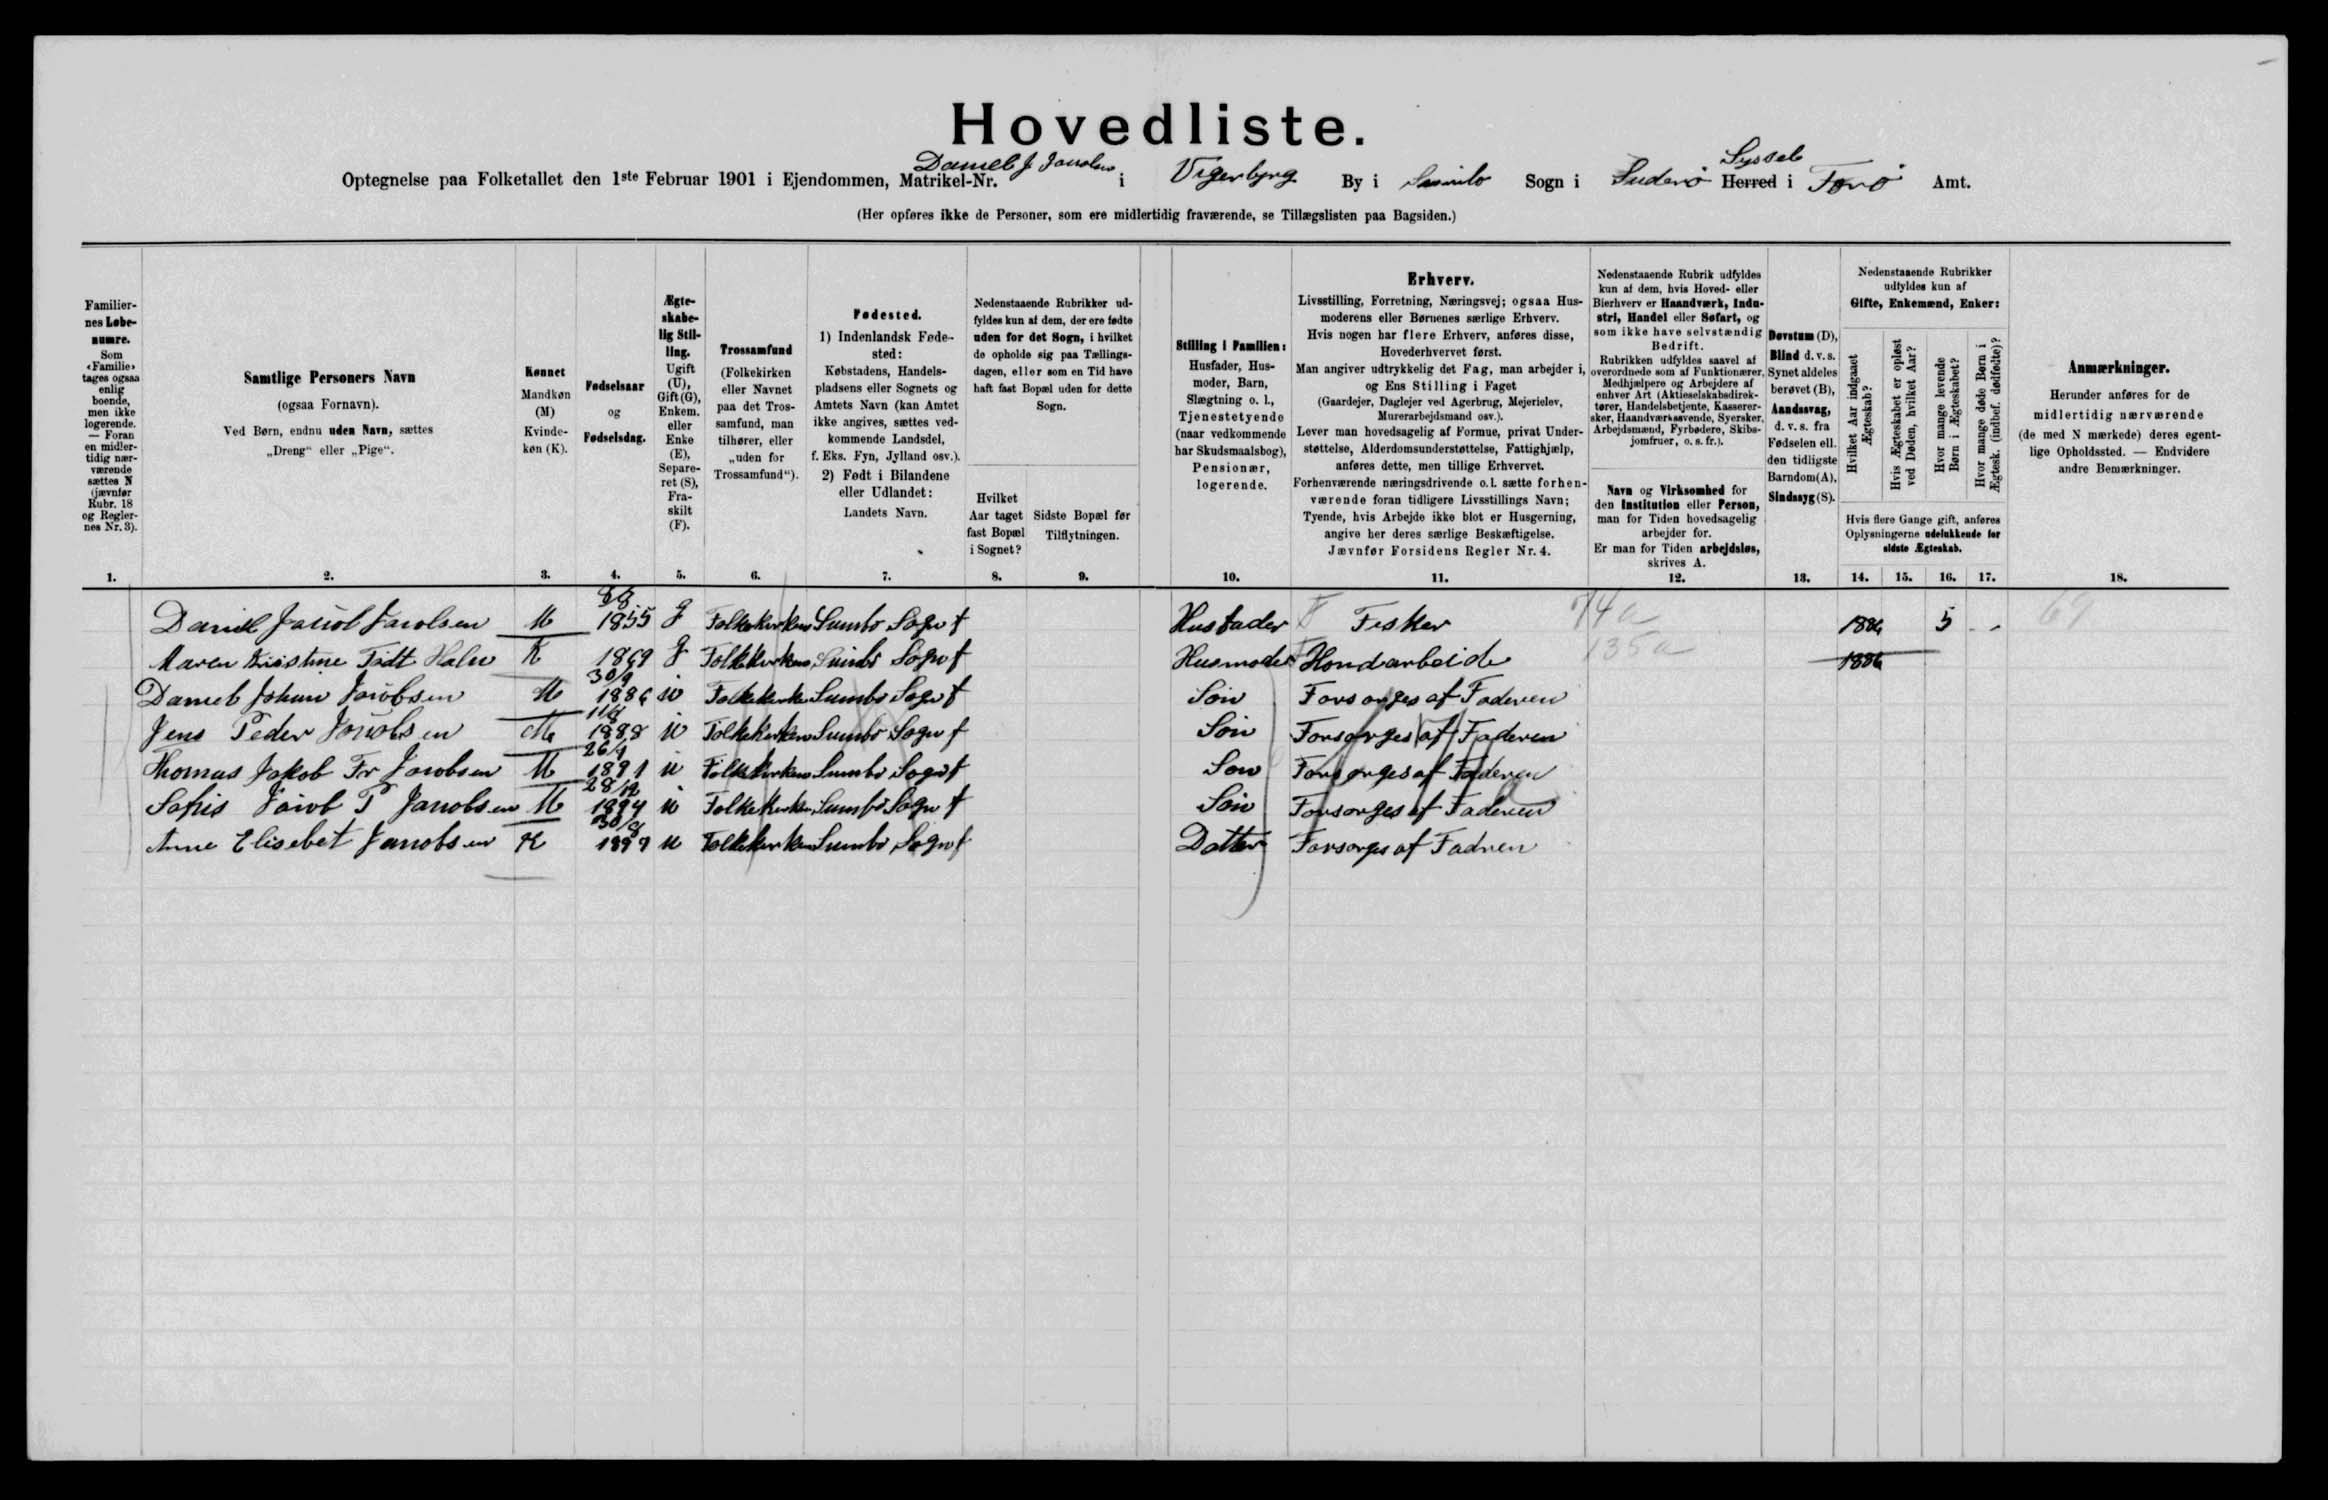 Hovedliste.
Optegnelse paa Folketallet den 1ste Februar 1901 i Ejendommen, Matrikel-Nr. Daniel J Jacobsen i By i Sumbø Sogn i Suderø Herred Syssel i Færø Amt.
(Her opføres ikke de Personer, som ere midlertidig fraværende, se Tillægslisten paa Bagsiden.)
Familiernes Løbenumre.
Som «Familie» tages ogsaa enlig boende, men ikke logerende. — Foran en midlertidig nærværende sættes N (jævnfør Rubr. 18 og Reglernes Nr. 3).
Samtlige Personers Navn
(ogsaa Fornavn).
Ved Børn, endnu uden Navn, sættes
„Dreng“ eller „Pige“.
Kønnet
Mandkøn (M)
Kvindekøn (K).
Fødselsaar
og
Fødselsdag.
Ægteskabelig Stilling.
Ugift (U), Gift (G), Enkem. eller Enke (E), Separeret (S), Fraskilt (F).
Trossamfund
(Folkekirken eller Navnet paa det Trossamfund, man tilhører, eller „uden for Trossamfund“).
Fødested.
1) Indenlandsk Fødested:
Købstadens, Handelspladsens eller Sognets og Amtets Navn (kan Amtet ikke angives, sættes vedkommende Landsdel, f. Eks. Fyn, Jylland osv.).
2) Født i Bilandene eller Udlandet:
Landets Navn.
Nedenstaaende Rubrikker udfyldes kun af dem, der ere fødte uden for det Sogn, i hvilket de opholde sig paa Tællingsdagen, eller som en Tid have haft fast Bopæl uden for dette Sogn.
Hvilket Aar taget fast Bopæl i Sognet?
Sidste Bopæl før Tilflytningen.
Stilling i Familien:
Husfader, Husmoder, Barn, Slægtning o. l., Tjenestetyende (naar vedkommende har Skudsmaalsbog), Pensionær, logerende.
Erhverv.
Livsstilling, Forretning, Næringsvej; ogsaa Husmoderens eller Børnenes særlige Erhverv.
Hvis nogen har flere Erhverv, anføres disse, Hovederhvervet først.
Man angiver udtrykkelig det Fag, man arbejder i, og Ens Stilling i Faget
(Gaardejer, Daglejer ved Agerbrug, Mejerielev, Murerarbejdsmand osv.).
Lever man hovedsagelig af Formue, privat Understøttelse, Alderdomsunderstøttelse, Fattighjælp, anføres dette, men tillige Erhvervet.
Forhenværende næringsdrivende o. l. sætte forhenværende foran tidligere Livsstillings Navn;
Tyende, hvis Arbejde ikke blot er Husgerning, angive her deres særlige Beskæftigelse.
Jævnfør Forsidens Regler Nr. 4.
Nedenstaaende Rubrik udfyldes kun af dem, hvis Hoved- eller Bierhverv er Haandværk, Industri, Handel eller Søfart, og som ikke have selvstændig Bedrift.
Rubrikken udfyldes saavel af overordnede som af Funktionærer, Medhjælpere og Arbejdere af enhver Art (Aktieselskabsdirektører, Handelsbetjente, Kasserersker, Haandværkssvende, Syersker, Arbejdsmænd, Fyrbødere, Skibsjomfruer, o. s. fr.).
Navn og Virksomhed for den Institution eller Person, man for Tiden hovedsagelig arbejder for.
Er man for Tiden arbejdsløs, skrives A.
Døvstum (D),
Blind d. v. s. Synet aldeles berøvet (B),
Aandssvag, d. v. s. fra Fødselen ell. den tidligste Barndom (A),
Sindssyg (S).
Nedenstaaende Rubrikker udfyldes kun af
Gifte, Enkemænd, Enker:
Hvilket Aar indgaaet Ægteskab?
Hvis Ægteskabet er opløst ved Døden, hvilket Aar?
Hvor mange levende Børn i Ægteskabet?
Hvor mange døde Børn i Ægtesk. (indbef. dødfødte)?
Hvis flere Gange gift, anføres Oplysningerne udelukkende for sidste Ægteskab.
Anmærkninger.
Herunder anføres for de midlertidig nærværende (de med N mærkede) deres egentlige Opholdssted. — Endvidere andre Bemærkninger.
1. 2. 3. 4. 5. 6. 7. 8. 9. 10. 11. 12. 13. 14. 15. 16. 17. 18.
Daniel Jacob Jacobsen M 1855 g Folkekirken Sumbø Sogn f Husfader Fisker 74a 1886 5 - 69
Maren Kristine Tødt K 1869 g Folkekirken Sumbø Sogn f Husmoder Hondarbeide 135a 1886
Daniel Johan Jacobsen M 30/9 1886 u Folkekirken Sumbø Sogn f Søn Forsørges af Faderen
Jens Peder Jacobsen M 11/8 1888 u Folkekirken Sumbø Sogn f Søn Forsørges af Faderen
Thomas Jakob Fr Jacobsen M 26/9 1891 u Folkekirken Sumbø Sogn f Søn Forsørges af Faderen
Sofus Jacob P Jacobsen M 28/12 1894 u Folkekirken Sumbø Sogn f Søn Forsørges af Faderen
Anne Elisebet Jacobsen K 30/8 1899 u Folkekirken Sumbø Sogn f Datter Forsørges af Fadren